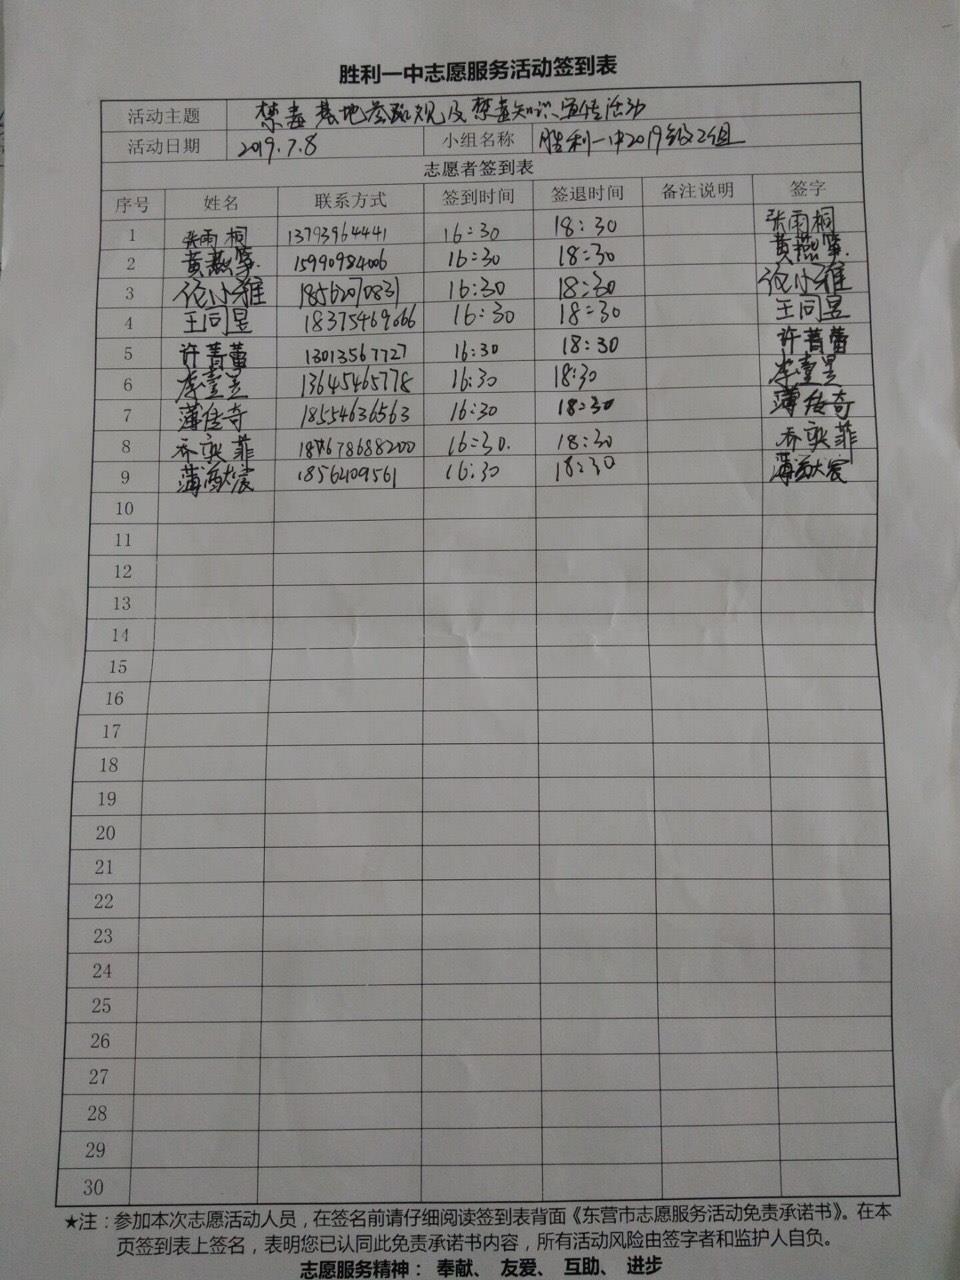 胜利一中志愿服务活动签到表
活动主题 禁毒基地参观及禁毒知识宣传活动
活动日期 2019.7.8 小组名称 胜利一中2019级2组
志愿者签到表
序号 姓名 联系方式 签到时间 签退时间 备注说明 签字
1 张雨桐 13793964441 16:30 18:30 张雨桐
2 黄燕 15990984006 16:30 18:30 黄燕
3 小雅 18562070831 16:30 18:30 小雅
4 王同昱 18375469666 16:30 18:30 王同昱
5 许菁蕾 13013567727 16:30 18:30 许菁蕾
6 李壹昊 13645465778 16:30 18:30 李壹昊
7 薄传奇 18554636563 16:30 18:30 薄传奇
8 乔奕菲 16:30. 18:30 乔奕菲
9 薄宸 1856409561 16:30 18:30 薄宸
10
11
12
13
14
15
16
17
18
19
20
21
22
23
24
25
26
27
28
29
30
★注：参加本次志愿活动人员，在签名前请仔细阅读签到表背面《东营市志愿服务活动免责承诺书》。在本
页签到表上签名，表明您已认同此免责承诺书内容，所有活动风险由签字者和监护人自负。
志愿服务精神： 奉献、 友爱、 互助、 进步